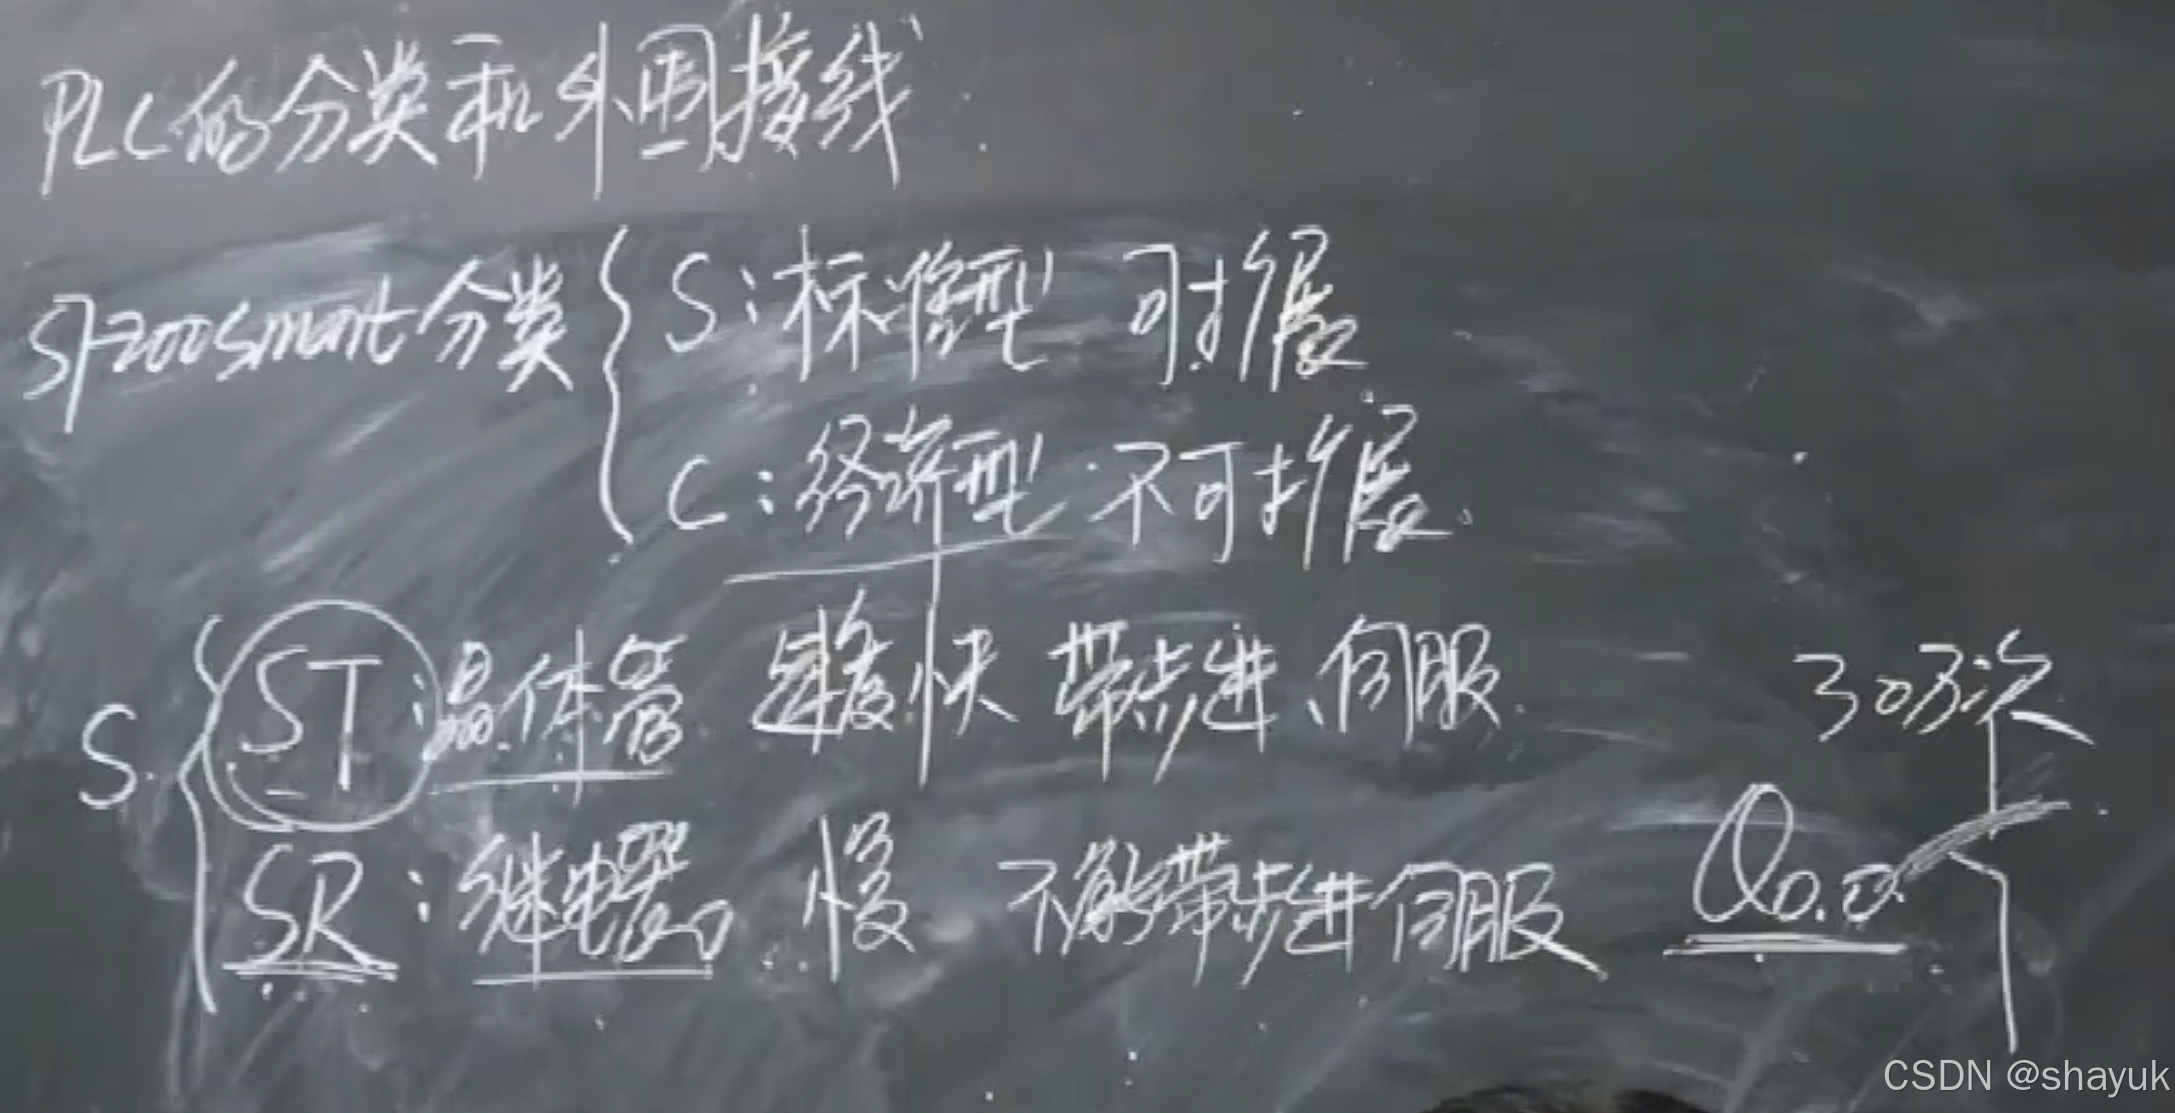 PLC的分类和外围接线
S7-200smart分类 { S：标准型 可扩展
C：经济型 不可扩展
S { ST：晶体管 速度快 带步进、伺服
30万次
SR：继电器 慢 不能带步进伺服 Q0.0
CSDN @shayuk